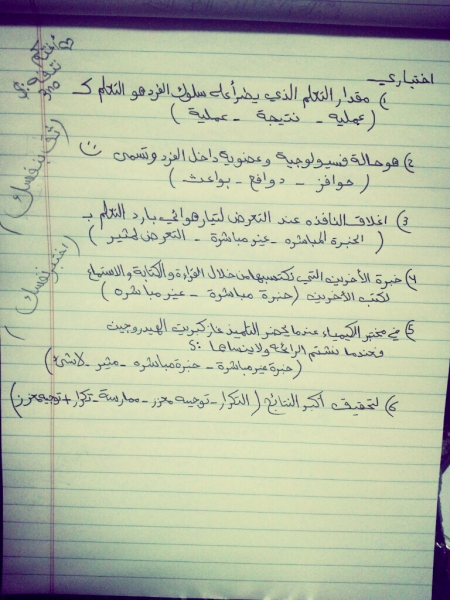 اختباري
1) مقدار التعلم الذي يطرأ على سلوك الفرد هو التعلم كـ
( عملية - نتيجة - عملية )
2) هو حالة فسيولوجية وعضوية داخل الفرد وتسمى
( حوافز - دوافع - بواعث )
3) اغلاق النافذه عند التعرض لتيار هوائي بارد التعلم بـ
( الخبرة المباشره - غير مباشرة - التعرض لمثير )
4) خبرة الأخرين التي نكتسبها من خلال القراءة والكتابة والاستماع
لكتب الأخرين ( خبرة مباشرة - غير مباشره )
5) في مختبر الكيمياء عندما يحضر التلميذ غاز كبريت الهيدروجين
وعندما نشتم الرائحة ولا ينساها :
( خبرة غير مباشرة - خبرة مباشره - مثير - لاشئ )
6) لتحقيق أكبر النتائج ( التكرار - توجيه معزز - ممارسة - تكرار + توجيه معزز )
ثقتك بنفسك
( اختبر نفسك )